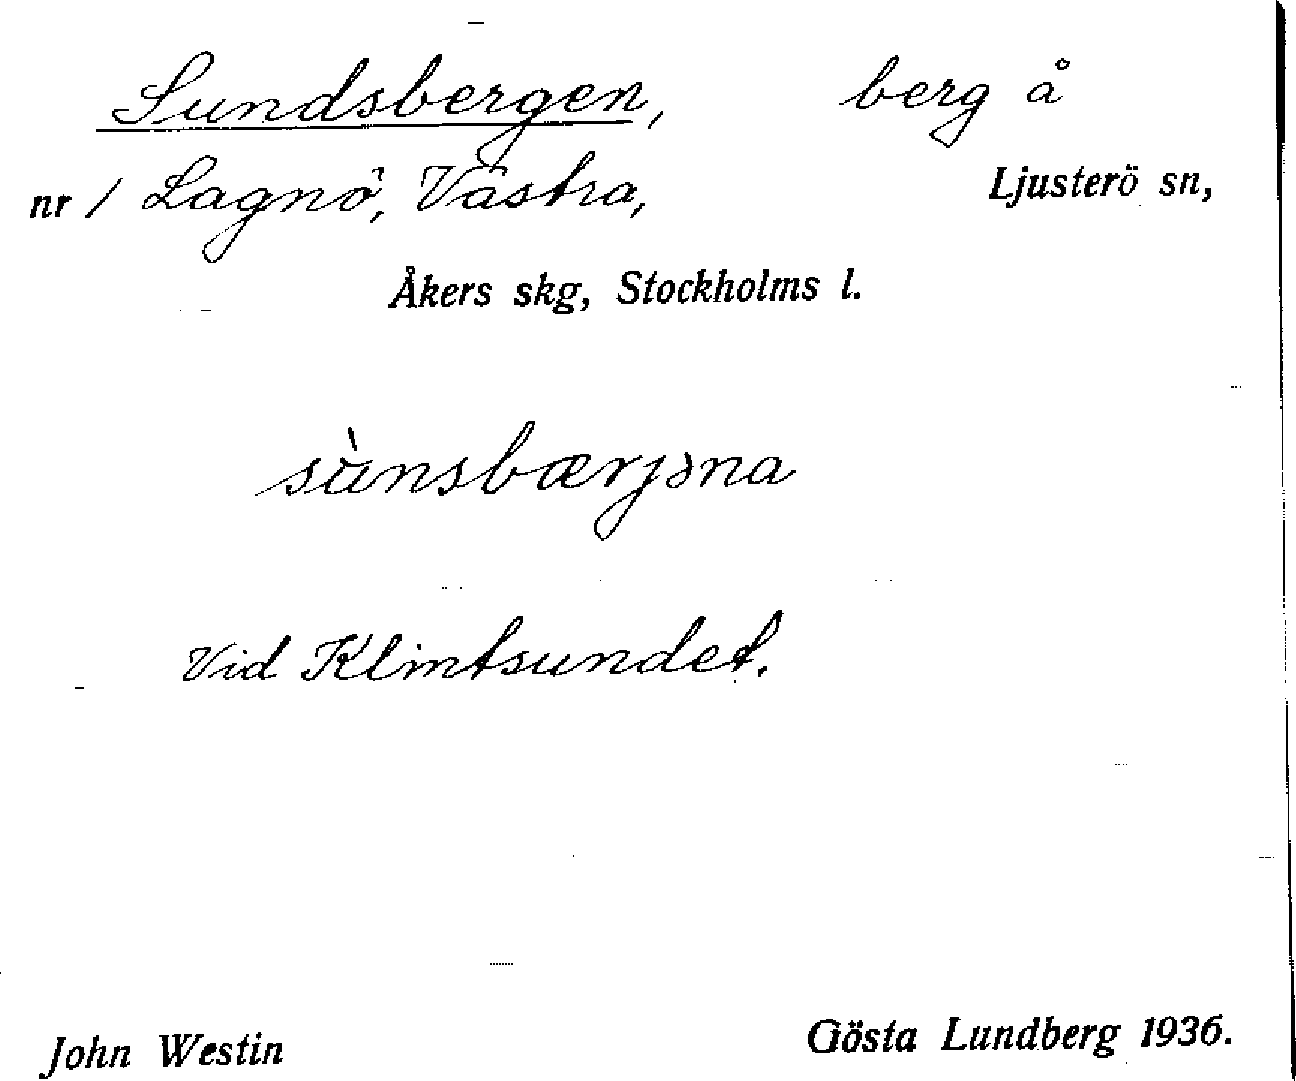 Sundsbergen, berg å
nr 1 Lagnö, Västra, Ljusterö sn,
Åkers skg, Stockholms l.
sùnsbærjəna
Vid Klintsundet.
John Westin Gösta Lundberg 1936.